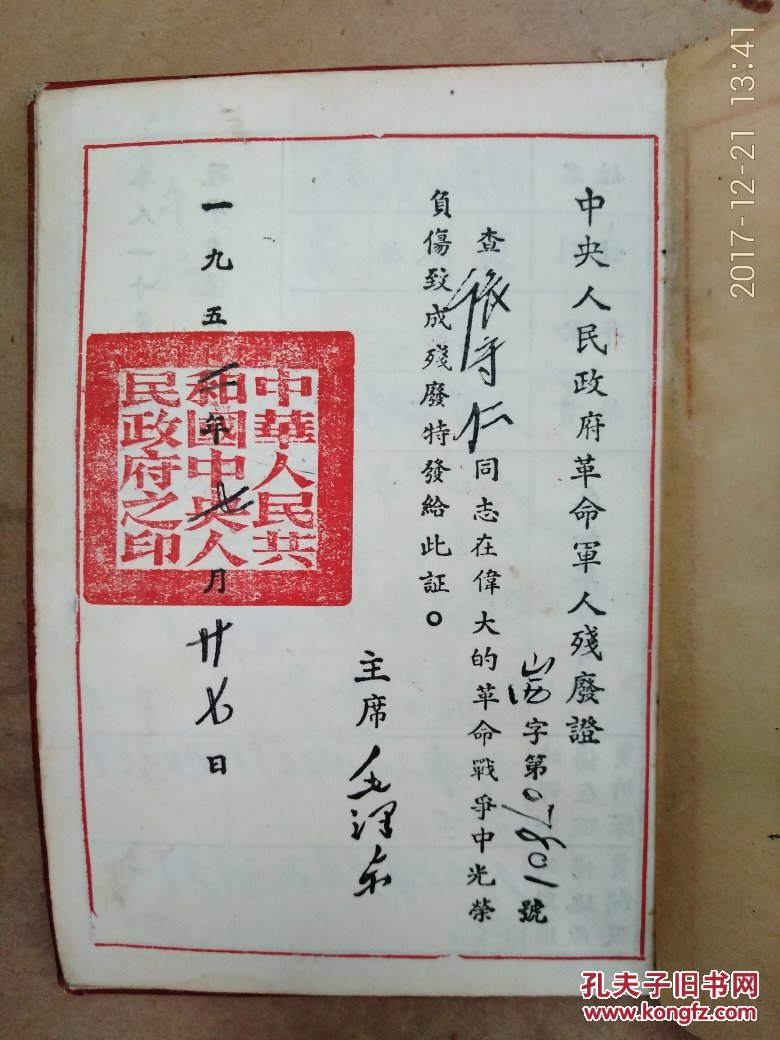 中央人民政府革命軍人殘廢證
山西字第07801號
查張守仁同志在偉大的革命戰爭中光榮
負傷致成殘廢特發給此証。
主席 毛澤东
一九五 年七月廿七日
中華人民共
和國中央人
民政府之印
2017-12-21 13:41
孔夫子旧书网
www.kongfz.com